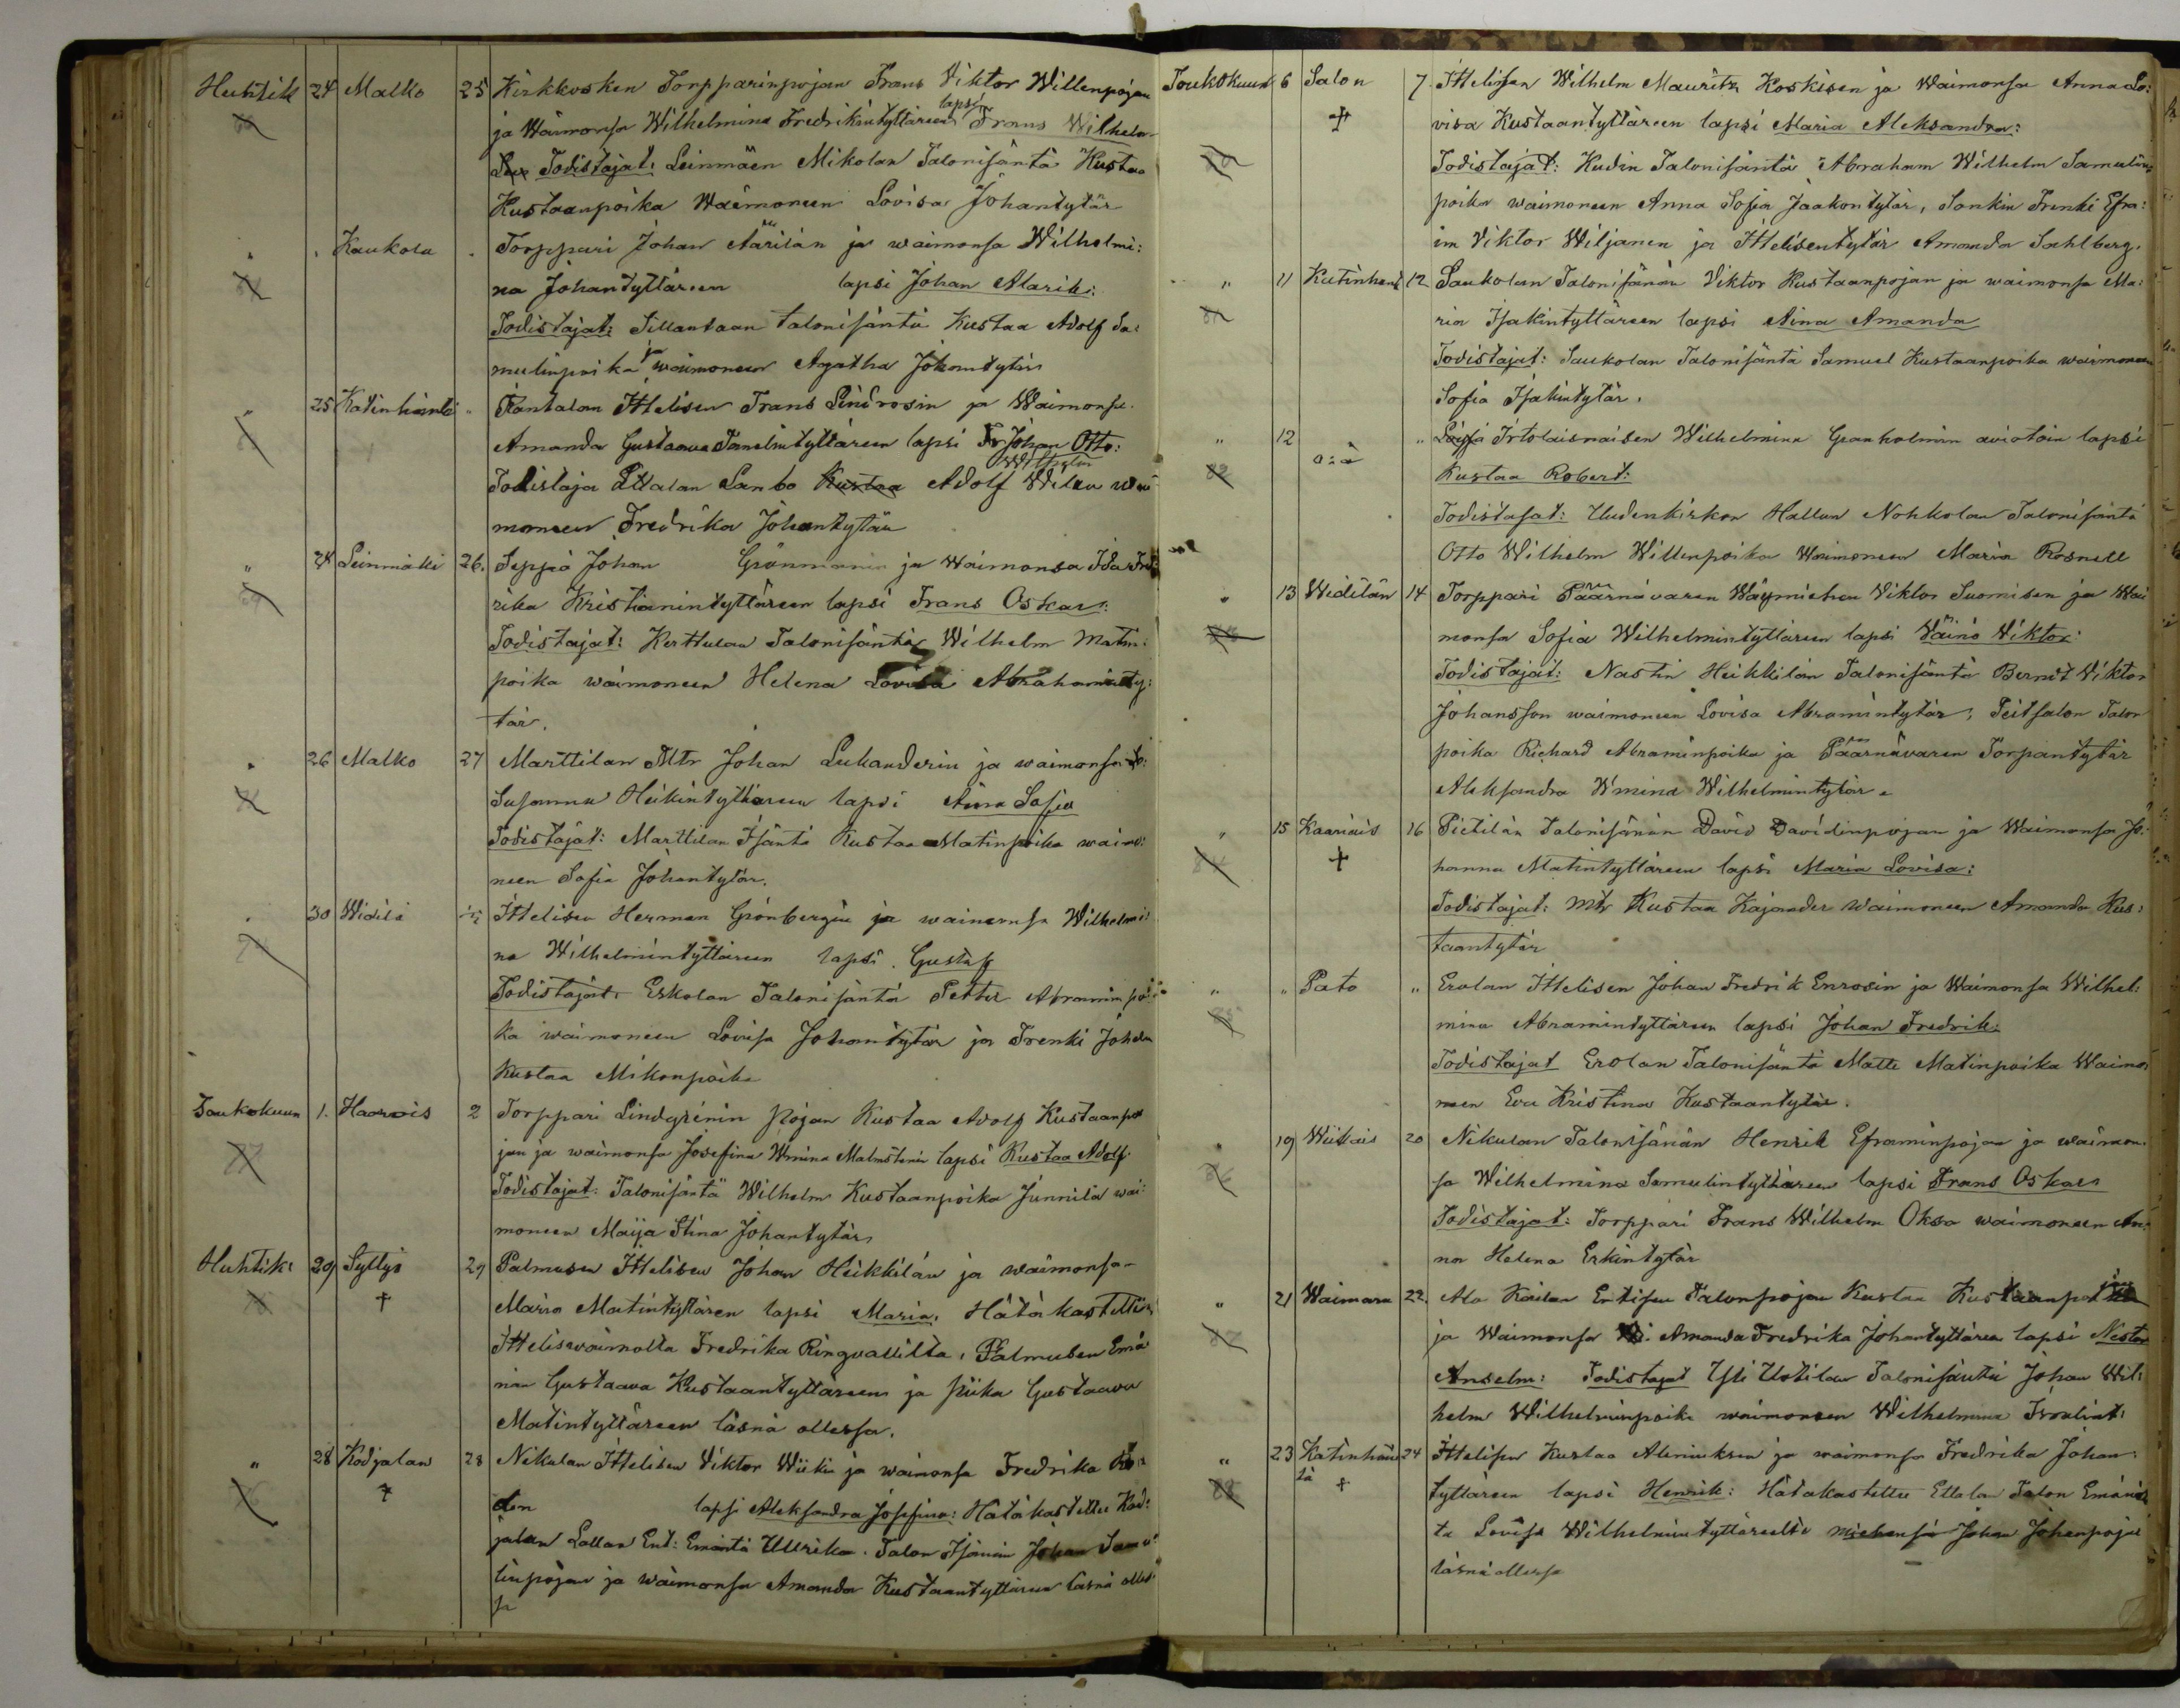 Huhtik 24 Malko 25 Kirkkosken Torpparinpojan Frans Viktor Willenpojan
ja Waimonsa Wilhelmina Fredrikintyttäreen lapsi Frans Wilhelm
Todistajat: Leinmäen Mikolan Talonisäntä Kustaa
Kustaanpoika Waimoneen Lovisa Johantytär
" Kaukola " Torppari Johan Äärilän ja waimonsa Wilhelmi:
na Johantyttäreen lapsi Johan Alarik:
Todistajat: Sillantaan talonisäntä Kustaa Adolf Sa:
mulinpoika waimoneen Agatha Johantytär
" 25 Katinhäntä " Rantalan Ittelisen Frans Lindrosin ja Waimonsa
Amanda Gustaava Tanelintyttäreen lapsi Johan Otto:
Wilhelm
Todistaja Ettalan Lanbo Kustaa Adolf Wilen wai
moneen Fredrika Johantytär
" 24 Leinmäki 26. Seppä Johan Grönmannin ja Waimonsa Ida Fred
rika Kristianintyttäreen lapsi Frans Oskar:
Todistajat: Kerttulan Talonisäntä Wilhelm Matin:
poika waimoneen Helena Lovisa Abrahaminty:
tär.
" 26 Malko 27 Marttilan Mtr Johan Lukanderin ja waimonsa
Susanna Heikintyttäreen lapsi Aina Sofia
Todistajat: Marttilan Isäntä Kustaa Matinpoika waimo:
neen Sofia Johantytär.
" 30 Widilä Ittelisen Herman Grönbergin ja waimonsa Wilhelmi
na Wilhelmintyttäreen lapsi Gustaf
Todistajat: Erkolan Talonisäntä Petter Abramin poi
ka waimoneen Lovisa Johantytär ja Trenki Johan
Kustaa Mikonpoika
Toukokuun 1. Haarois 2 Torppari Lindgrénin pojan Kustaa Adolf Kustaanpo
jan ja waimonsa Josefina Wmina Malmstenin lapsi Kustaa Adolf
Todistajat: Talonisäntä Wilhelm Kustaanpoika Junnila wai:
moneen Maija Stina Johantytär
Huhtik: 29 Syttys 29 Palmusen Ittelisen Johan Heikkilän ja waimonsa
+ Maria Matintyttären lapsi Maria. Hätäkastettu
Itteliswaimolta Fredrika Ringvallilta, Palmusen Emä
nän Gustaava Kustaantyttäreen ja piika Gustaava
Matintyttäreen läsnä ollessa.
" 28 Kodjalan 28 Nikulan Ittelisen Viktor Wiikin ja waimonsa Fredrika
+ lapsi Aleksandra Josefina: Hätäkastettu Kod:
jalan Lallan Ent: Emäntä Ullrika. Talon Isännän Johan Samu
linpojan ja waimonsa Amanda Kustaantyttäreen läsnä olles
sa
Toukokuun 6 Salon 7. Ittelisen Wilhelm Mauritz Koskisen ja Waimonsa Anna Lo:
+ visa Kustaantyttäreen lapsi Maria Aleksandra:
Todistajat: Kudin Talonisäntä Abraham Wilhelm Samulin
poika waimoneen Anna Sofia Jaakontytär, Sonkin Trenki Efra:
im Viktor Wiljanen ja Ittelisentytär Amanda Sahlberg.
" 11 Katinhänd 12 Saukolan Talonisännän Viktor Kustaanpojan ja waimonsa Ma:
ria Isakintyttäreen lapsi Aina Amanda
Todistajat: Saukolan Talonisäntä Samuel Kustaanpoika waimoneen
Sofia Isakintytär.
" 12 " Irtolaisnaisen Wilhelmina Granholmin aviotoin lapsi
o:ä
82 Kustaa Robert:
Todistajat: Uudenkirkon Hallun Nohkolan Talonisäntä
Otto Wilhelm Willenpoika Waimoneen Maria Rosnell
" 13 Widilän 14 Torppari Päärnävaren Wäymiehen Viktor Suomisen ja Wai
monsa Sofia Wilhelmintyttäreen lapsi Väinö Viktor:
Todistajat: Nastin Heikkilän Talonisäntä Berndt Viktor
Johansson waimoneen Lovisa Abramintytär, Peitsalon Talon
poika Richard Abraminpoika ja Päärnävaren Torpantytär
Aleksandra Wmina Wilhelmintytär.
" 15 Kaariais 16 Pietilän Talonisännän David Davidinpojan ja Waimonsa Jo:
+ hanna Matintyttäreen lapsi Maria Lovisa:
Todistajat: Mtr Kustaa Kajander Waimoneen Amanda Kus:
taantytär
" " Pato " Erolan Ittelisen Johan Fredrik Enrosin ja Waimonsa Wilhel:
85 mina Abramintyttäreen lapsi Johan Fredrik:
Todistajat Erolan Talonisäntä Matti Matinpoika Waimo
neen Eva Kristina Kustaantytär.
" 19 Wiikais 20 Nikulan Talonisännän Henrik Eframinpojan ja waimon
86 sa Wilhelmina Samulintyttäreen lapsi Frans Oskar
Todistajat: Torppari Frans Wilhelm Oksa waimoneen An:
na Helena Erkintytär
" 21 Waimara 22. Ala Kailan Entisen Talonpojan Kustaa Kustaanpojan
87 ja Waimonsa Amanda Fredrika Johantyttären lapsi Nestor
Anselm: Todistajat Yli Uotilan Talonisäntä Johan Wil:
helm Wilhelminpoika waimoneen Wilhelmina
" 23 Katinhän 24 Ittelisen Kustaa Aleniuksen ja waimonsa Fredrika Johan:
88 tä + tyttäreen lapsi Henrik: Hätäkastettu Ettalan Talon Emännä
tä Lovisa Wilhelmiintyttäreeltä miehensä Johan Johanpojan
läsnä ollessa